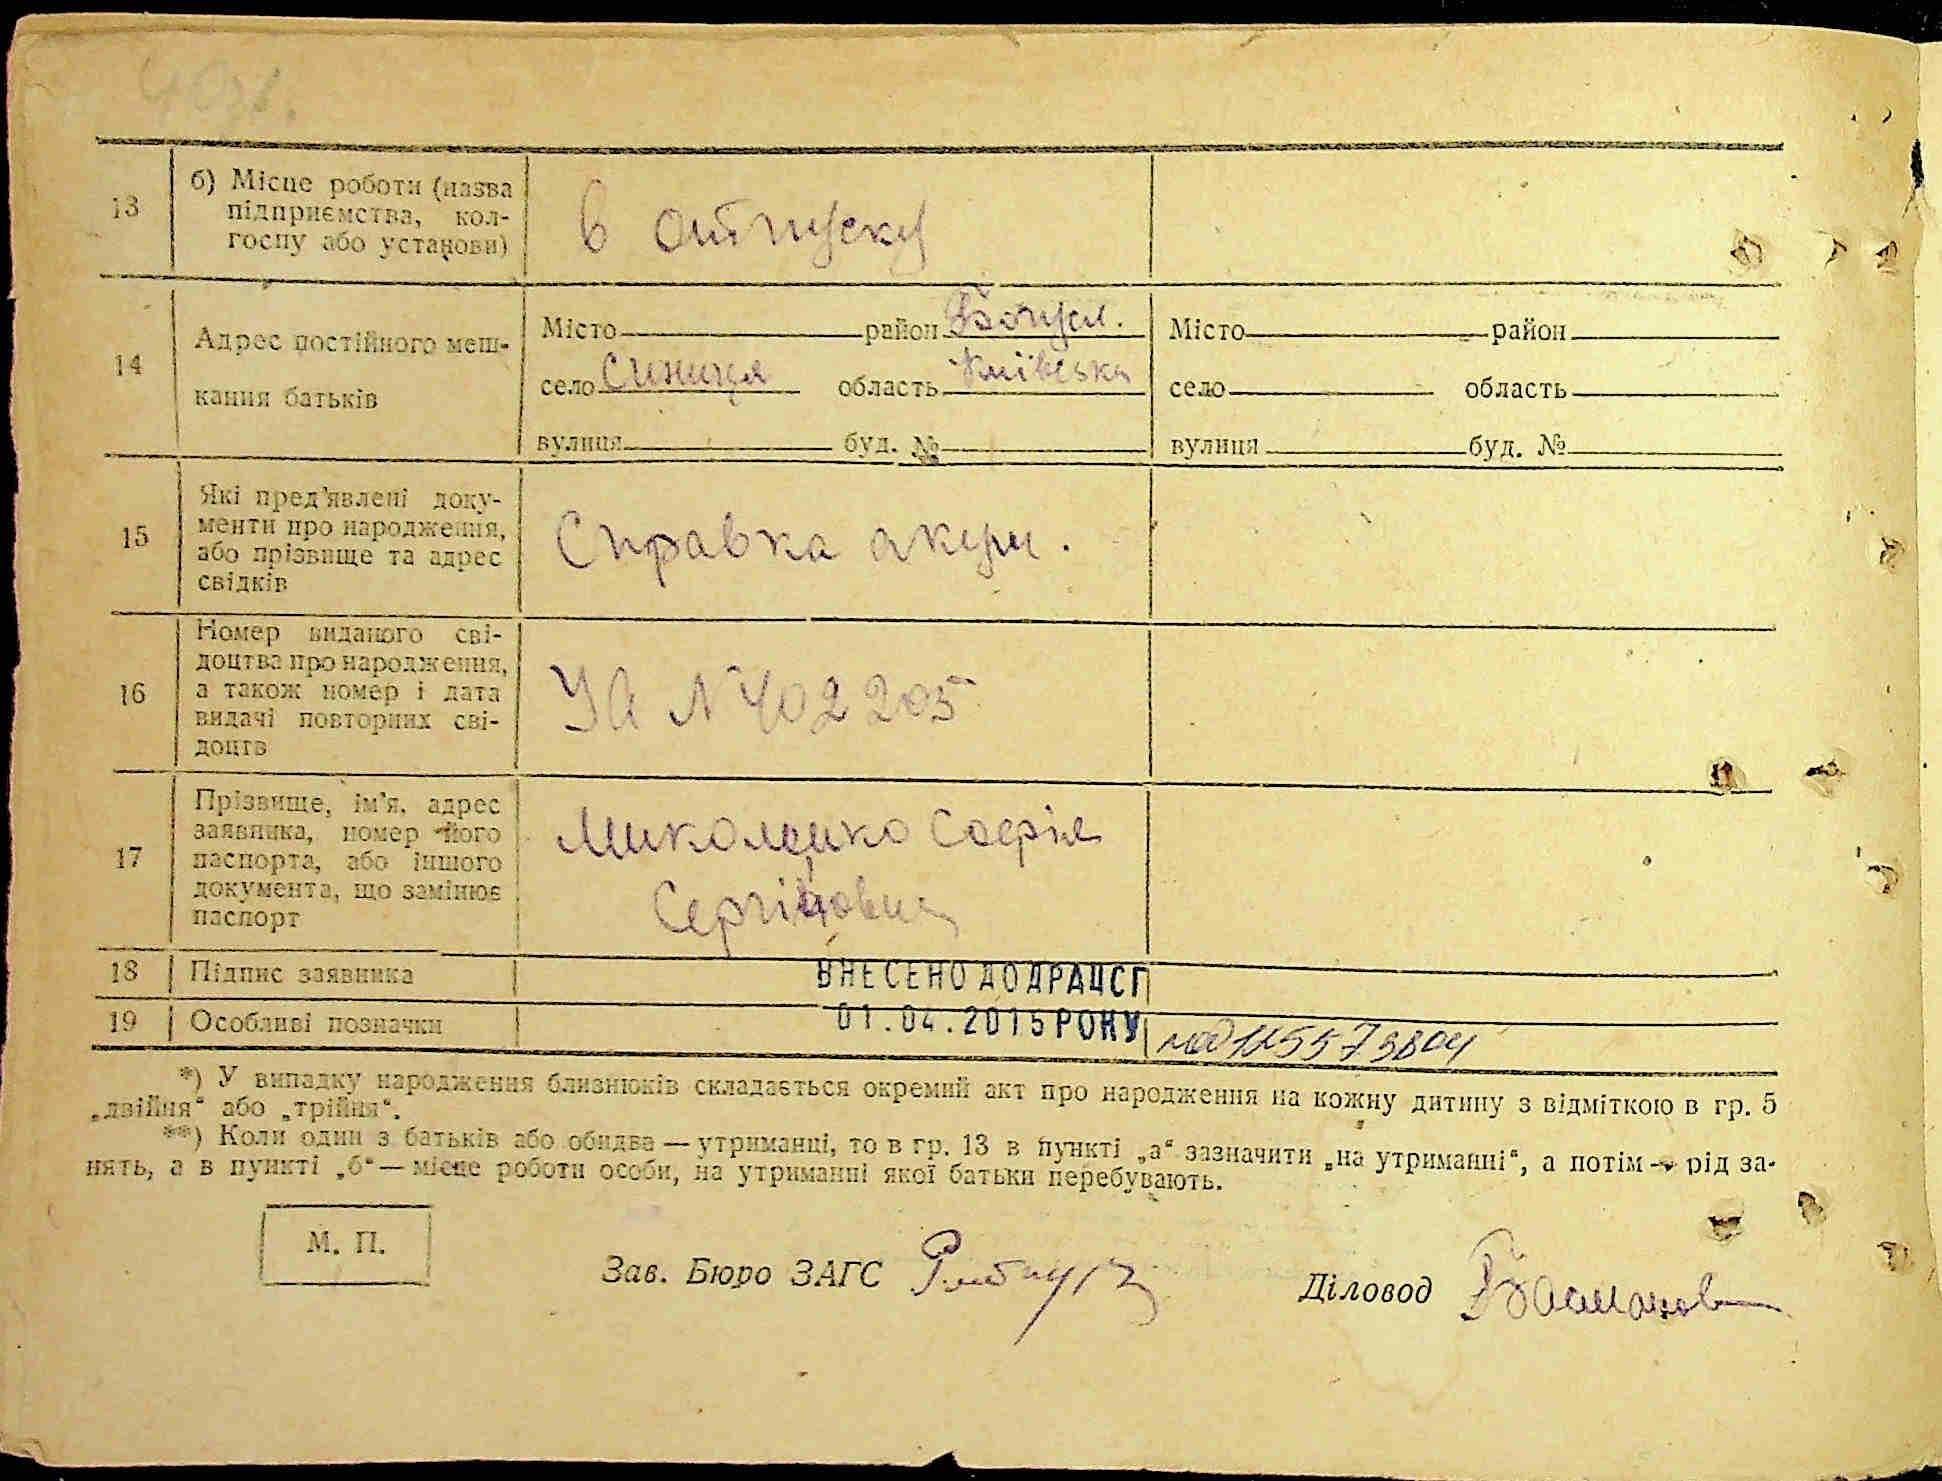 13
б) Місце роботи (назва
підприємства, кол-
госпу або установи)
в отпуску
14
Адрес постійного меш-
кання батьків
Місто район Богусл.
село Синиця область Київська
вулиця буд. №
Місто район
село область
вулиця буд. №
15
Які пред'явлені доку-
менти про народження,
або прізвище та адрес
свідків
Справка акуш.
16
Номер виданого сві-
доцтва про народження,
а також номер і дата
видачі повторних сві-
доцтв
УА № 402205
17
Прізвище, ім'я, адрес
заявника, номер його
паспорта, або іншого
документа, що замінює
паспорт
Софія
Сергіївна
18
Підпис заявника
19
Особливі позначки
ВНЕСЕНО ДО ДРАЦСГ
01.04.2015 РОКУ
*) У випадку народження близнюків складається окремий акт про народження на кожну дитину з відміткою в гр. 5
„двійня“ або „трійня“.
**) Коли один з батьків або обидва — утриманці, то в гр. 13 в пункті „а“ зазначити „на утриманні“, а потім — рід за-
нять, а в пункті „б“ — місце роботи особи, на утриманні якої батьки перебувають.
М. П.
Зав. Бюро ЗАГС
Діловод